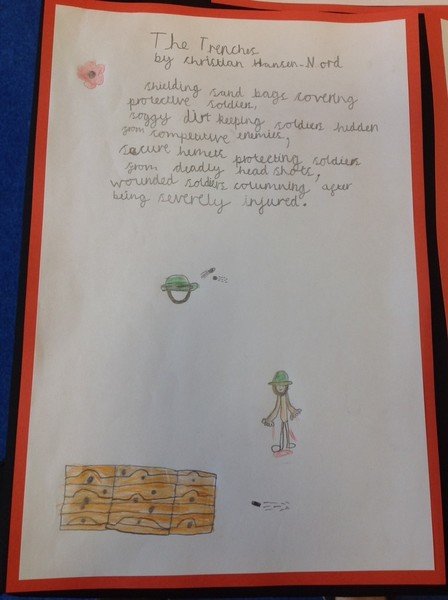 The Trenches
by Christian Hansen-Nord
shielding sand bags covering
protective soldiers,
soggy dirt keeping soldiers hidden
from competive enemies,
secure hemets protecting soldiers
from deadly head shots,
wounded soldiers columning after
being severely injured.